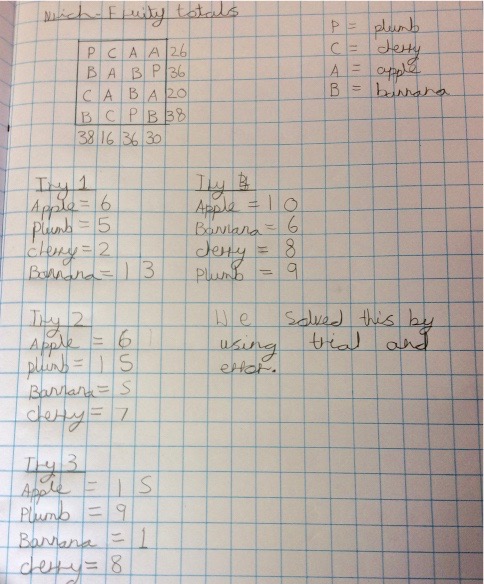 Nrich - Fruity totals
P C A A 26
B A B P 36
C A B A 20
B C P B 38
38 16 36 30
P = plumb
C = cherry
A = apple
B = bannana
Try 1
Apple = 6
Plumb = 5
cherry = 2
Bannana = 13
Try 2
Apple = 6
plumb = 15
Bannana = 5
cherry = 7
Try 3
Apple = 15
Plumb = 9
Bannana = 1
cherry = 8
Try
Apple = 10
Bannana = 6
cherry = 8
Plumb = 9
We solved this by
using trial and
error.